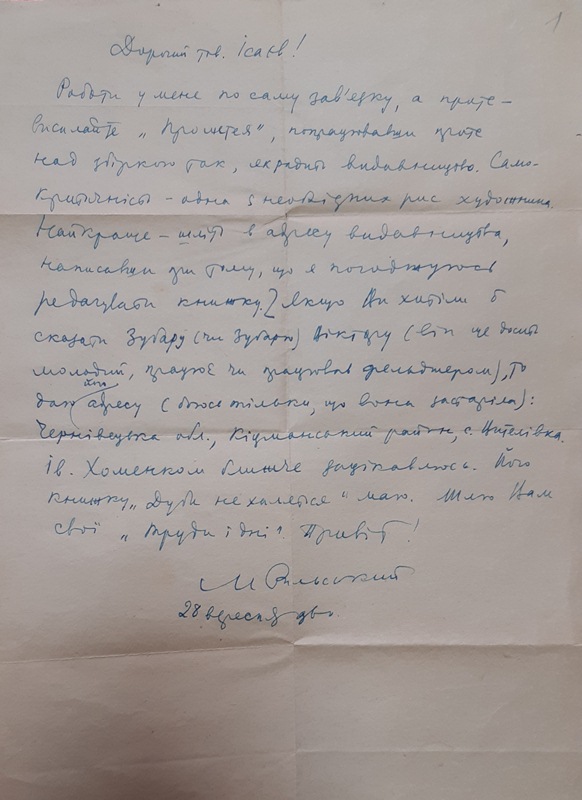 1
Дорогий тов. Ісаєв!
Роботи у мене по саму зав'язку, а проте –
висилайте „Прометея", попрацювавши проте
над збіркою так, як радить видавництво. Само-
критичність – одна з необхідних рис художника.
Найкраще – шліть в адресу видавництва,
написавши при тому, що я погоджуюсь
редагувати книжку. Якщо Ви хотіли б
сказати Зубару (чи Зубарю) Віктору (він ще досить
молодий, працює чи працював фельдшером), то
даю адресу (боюсь тільки, що вона застаріла):
Чернівецька обл., Кіцманський район, с. Витилівка.
Ів. Хоменком ближче зацікавлюсь. Його
книжку „Дуби не хиляться" маю. Шлю Вам
свої „Труди і дні". Привіт!
М Рильський
28 вересня